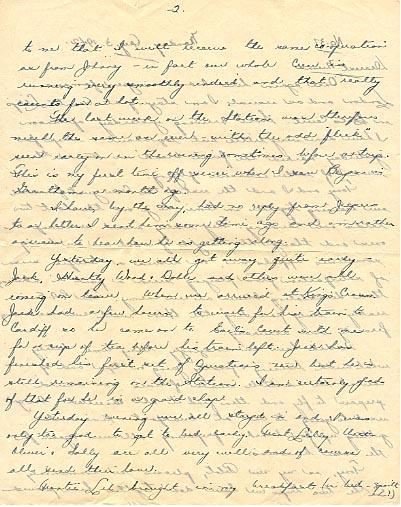 2.
to me that I will receive the same co-operation
as from Johnny - in fact our whole Crew is
running very smoothly indeed and that really
counts for a lot.
This last week on the Station was therefore
much the same as work with the odd "flick"
seen early on in the evening sometimes before our trip.
This is my first time off since when I saw
a month ago.
I have, by the way, had no reply from
to a letter I sent him some time ago and am rather
anxious to hear how he is getting along.
Yesterday, we all got away quite early -
Jack, Wood & and others were all
going on leave. When we arrived at King's Cross
Jack had a few hours to wait for his train to
Cardiff so he came on to Earl's Court with me
for a cup of tea before his train left. Jack has
finished his first set of Operations now but he is
still remaining on the Station. I am certainly glad
of that for he is a good chap.
Yesterday evening we all stayed in and I was
only too glad to get to bed early. Aunt Lilly, Uncle
Oliver & Lolly are all very well and of course
all send their love.
Auntie Lil brought in my breakfast in bed - spoilt